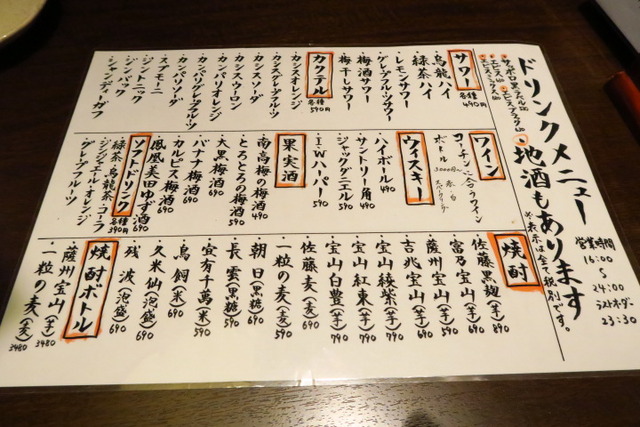 ドリンクメニュー
地酒もあります
※表示は全て税別です。
営業時間
16:00
〜
24:00
ラストオーダー
23:30
サワー 各種490円
・烏龍ハイ
・緑茶ハイ
・レモンサワー
・グレープフルーツサワー
・梅酒サワー
・梅干しサワー
カクテル 各種590円
・カシスオレンジ
・カシスグレープフルーツ
・カシスソーダ
・カシスウーロン
・カンパリオレンジ
・カンパリグレープフルーツ
・カンパリソーダ
・スプモーニ
・ジントニック
・ジンバック
・シャンディーガフ
ワイン
コーチンに合うワイン
ボトル 3000円〜
ウィスキー
・ハイボール 490
・サントリー角 490
・ジャックダニエル 590
・I・Wハーパー 590
果実酒
・南高梅の梅酒 490
・とろとろの梅酒 590
・大黒梅酒 590
・バナナ梅酒 690
・カルピス梅酒 690
・鳳凰美田ゆず酒 690
ソフトドリンク 各種390円
・緑茶・烏龍茶・コーラ
・ジンジャエール・オレンジ
・グレープフルーツ
焼酎
・佐藤黒麹(芋) 890
・富乃宝山(芋) 690
・薩州宝山(芋) 590
・吉兆宝山(芋) 690
・宝山綾紫(芋) 790
・宝山紅東(芋) 790
・宝山白豊(芋) 790
・佐藤麦(麦) 690
・一粒の麦(麦) 590
・朝日(黒糖) 690
・長雲(黒糖) 590
・宜有千萬(米) 590
・鳥飼(米) 690
・久米仙(泡盛) 690
・残波(泡盛) 690
焼酎ボトル
・薩州宝山(芋) 3480
・一粒の麦(麦) 3480